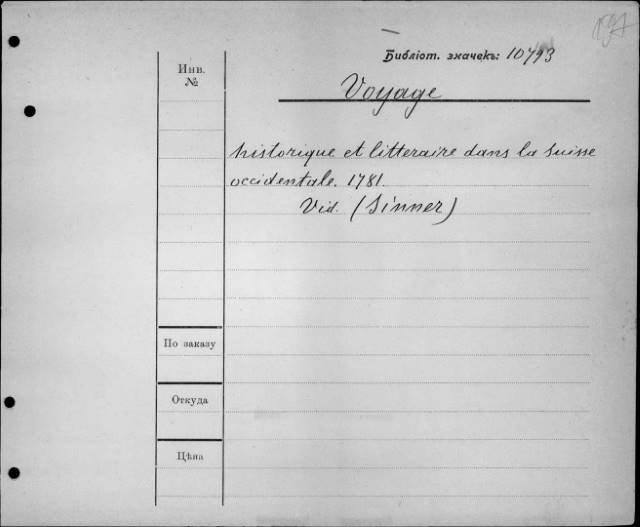 Библіот. значекъ: 10793
Инв.
№
Voyage
historique et litteraire dans la Suisse
occidentale. 1781.
Vid. (Sinner)
По заказу
Откуда
Цѣна